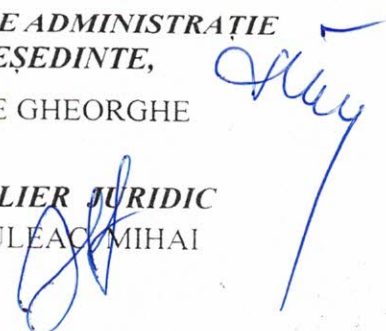 E ADMINISTRAȚIE
EȘEDINTE,
E GHEORGHE
LIER JURIDIC
ULEAC MIHAI